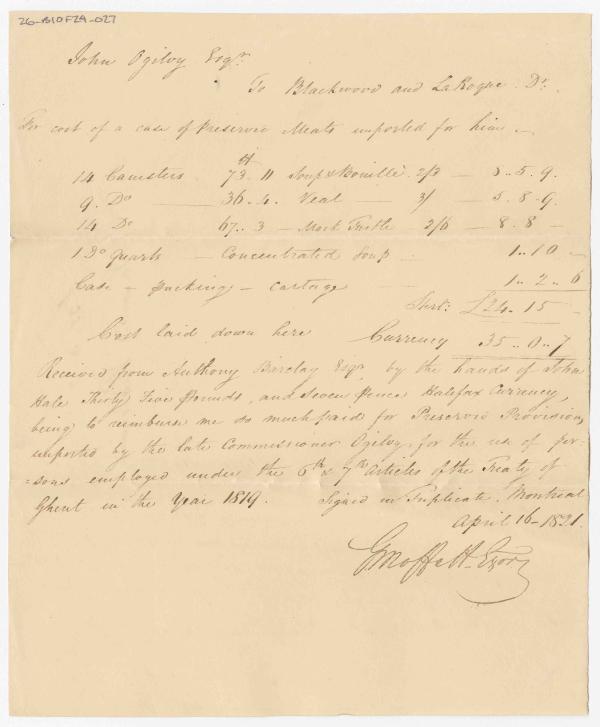 26-B10F2A-027
John Ogilvy Esqr.
To Blackwood and LaRoque Dr.
For cost of a case of Preserve Meats imported for him —
14 Canisters 73 lb 11 Soup & Bouillé 2/3 — 8..5..9.
9. Do — 36..4. Veal — 3/ — 5..8..9.
14 Do 67..3 — Mock Turtle — 2/6 — 8..8 —
1 Do quart — Concentrated Soup — 1..10 —
Case — packing — cartage — 1..2..6
Sterl: £24..15 —
Cost laid down here Currency 35..0..7
Received from Anthony Barclay Esqr. by the hands of John
Hale Thirty Five Pounds, and Seven Pence Halifax Currency,
being to reimburse me so much paid for Preserve Provision,
imported by the late Commissioner Ogilvy, for the use of per-
=sons employed under the 6th & 7th Articles of the Treaty of
Ghent in the Year 1819. Signed in Triplicate. Montreal
April 16 - 1821.
G Moffatt Exor